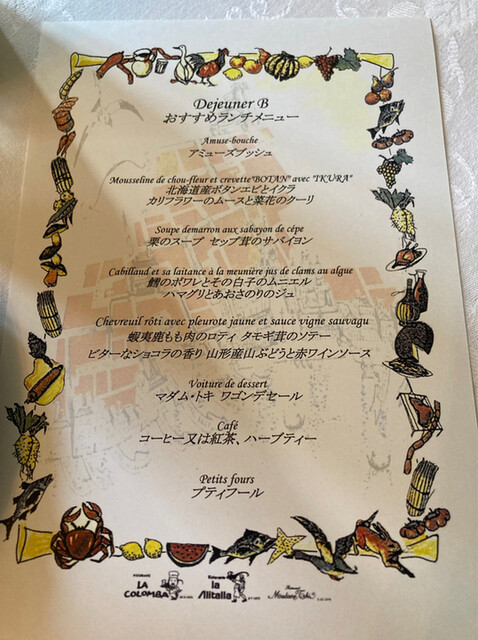 Dejeuner B
おすすめランチメニュー
Amuse-bouche
アミューズブッシュ
Mousseline de chou-fleur et crevette"BOTAN" avec "IKURA"
北海道産ボタンエビとイクラ
カリフラワーのムースと菜花のクーリ
Soupe demarron aux sabayon de cépe
栗のスープ セップ茸のサバイヨン
Cabillaud et sa laitance à la meunière jus de clams au algue
鱈のポワレとその白子のムニエル
ハマグリとあおさのりのジュ
Chevreuil rôti avec pleurote jaune et sauce vigne sauvagu
蝦夷鹿もも肉のロティ タモギ茸のソテー
ビターなショコラの香り 山形産山ぶどうと赤ワインソース
Voiture de dessert
マダム・トキ ワゴンデセール
Café
コーヒー又は紅茶、ハーブティー
Petits fours
プティフール
LA COLOMBA
la Alitalia
Madame Toki